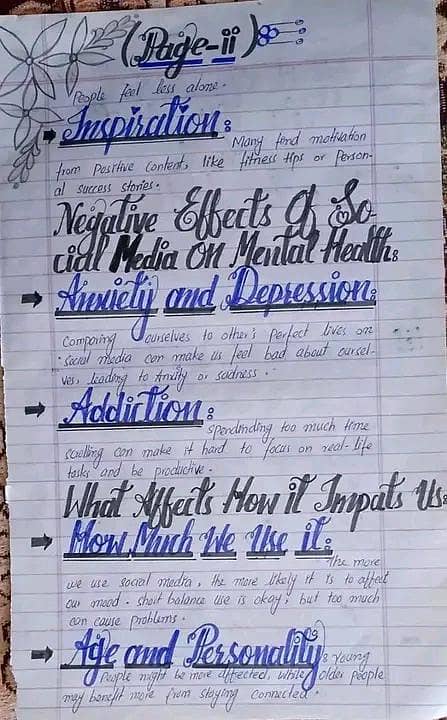 (Page-ii)
People feel less alone.
Inspiration:
Many fend motivation
from Positive Content, like fitness tips or Person-
al success stories.
Negative Effects Of So-
cial Media On Mental Health:
Anxiety and Depression:
Comparing ourselves to other's perfect lives on
social media can make us feel bad about oursel-
ves, leading to Anxity or sadness.
Addiction:
spendinding too much time
scrolling can make it hard to focus on real-life
tasks and be productive.
What Affects How it Impats Us:
How Much We Use it:
The more
we use social media, the more likely it is to affect
our mood. short balance use is okay, but too much
can cause problems.
Age and Personality: Young
People might be more affected, while older people
may benefit more from staying connected.